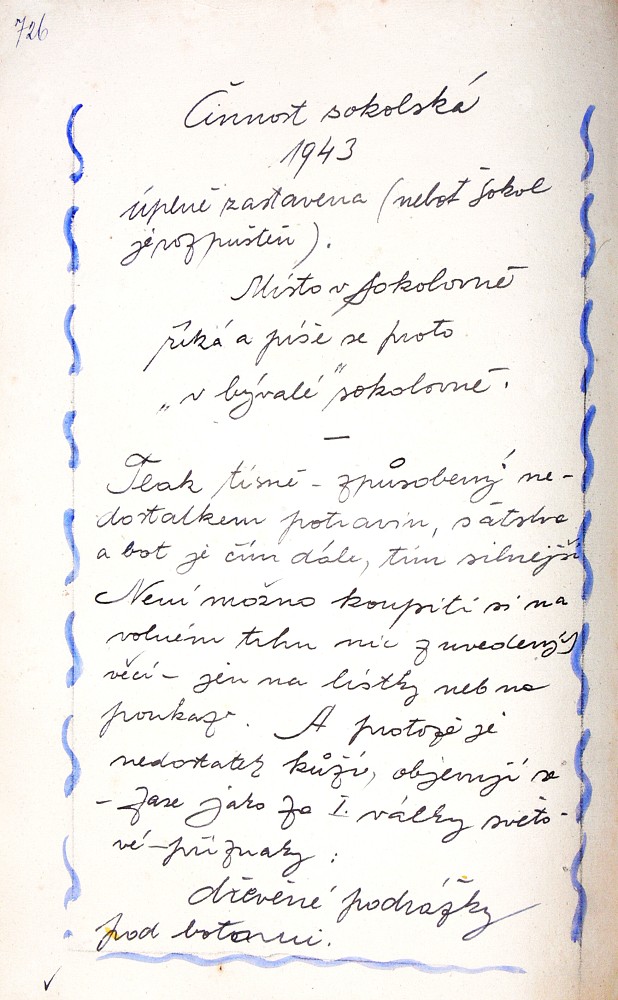 726
Činnost sokolská
1943
úplně zastavena (neboť Sokol
je rozpuštěn).
Místo v Sokolovně
říká a píše se proto
„v bývalé" sokolovně.
—
Tlak tísně - způsobený ne-
dostatkem potravin, šatstva
a bot je čím dále, tím silnější
Není možno koupiti si na
volném trhu nic z uvedených
věcí - jen na lístky neb na
poukaz. A protože je
nedostatek kůží, objevují se
- zase jako za I. války světo-
vé - příznaky:
dřevěné podrážky
pod botami.